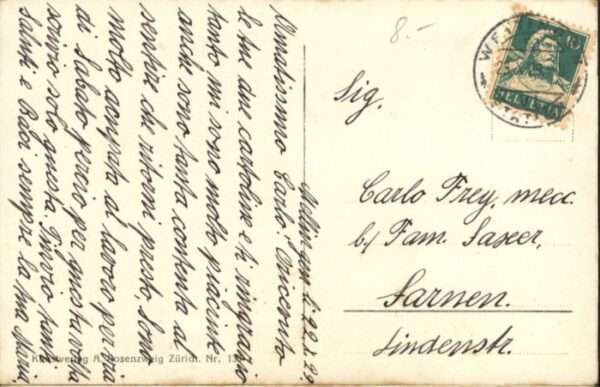 Mellingen li 22.I.29.
Amatissimo Carlo. Ricevuto
le tue due cartoline e ti ringrazio
tanto mi sono molto piaciute
anche sono tanta contenta al
sentire che ritorni presto, Sono
molto occupata al lavoro per via
di Sabato perciò per questa volta
scrivio solo questa. Tinvio tanti
saluti e Baci sempre la tua Maria
8.-
HELVETIA
10
Sig.
Carlo Frey, mecc.
b/ Fam.
Sarnen.
Lindenstr.
Kunstverlag A. Rosenzweig Zürich. Nr.